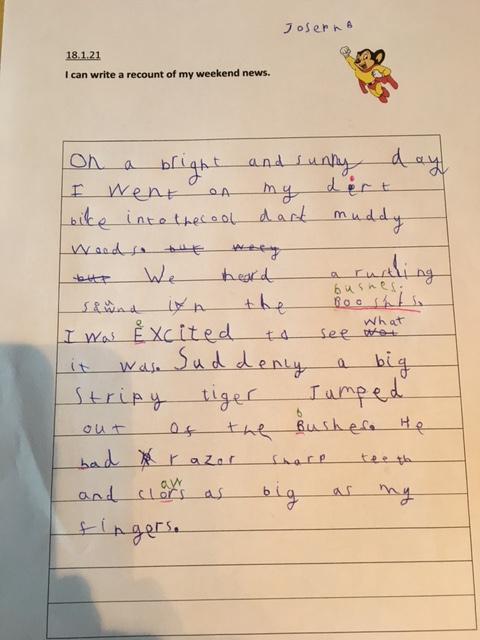 Joseph B
18.1.21
I can write a recount of my weekend news.
On a bright and sunny day
I went on my dirt
bike into the cool dark muddy
woods. but wery
but We heard a rustling
bushes.
sound in the Booshis.
what
I was Excited to see wot
it was. Suddenly a big
Stripy tiger Jumped
b
out of the Bushes. He
had razor sharp teeth
aw
and clors as big as my
fingers.